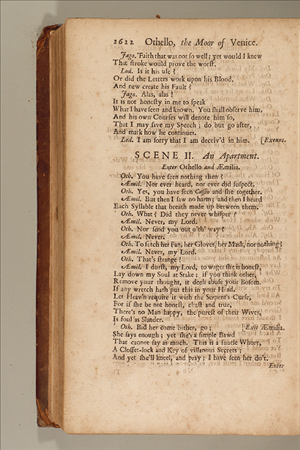 2622 Othello, the Moor of Venice.
Jago. 'Faith that was not so well; yet would I knew
That stroke would prove the worst.
Lod. Is it his use?
Or did the Letters work upon his Blood,
And new create his Fault?
Jago. Alas, alas!
It is not honesty in me to speak
What I have seen and known. You shall observe him,
And his own Courses will denote him so,
That I may save my Speech; do but go after,
And mark how he continues.
Lod. I am sorry that I am deceiv'd in him. [Exeunt.
SCENE II. An Apartment.
Enter Othello and Æmilia.
Oth. You have seen nothing then?
Æmil. Nor ever heard, nor ever did suspect.
Oth. Yes, you have seen Cassio and she together.
Æmil. But then I saw no harm; and then I heard
Each Syllable that breath made up between them.
Oth. What! Did they never whisper?
Æmil. Never, my Lord.
Oth. Nor send you out o'th' way?
Æmil. Never.
Oth. To fetch her Fan, her Gloves, her Mask, nor nothing?
Æmil. Never, my Lord.
Oth. That's strange!
Æmil. I durst, my Lord, to wager she is honest,
Lay down my Soul at Stake: if you think other,
Remove your thought, it doth abuse your Bosom.
If any wretch hath put this in your Head,
Let Heav'n requite it with the Serpent's Curse,
For if she be not honest, chast and true,
There's no Man happy, the purest of their Wives,
Is foul as Slander.
Oth. Bid her come hither, go; Exit Æmilia.
She says enough; yet she's a simple Bawd
That cannot say as much. This is a subtle Whore,
A Closset-lock and Key of villanous Secrets;
And yet she'll kneel, and pray; I have seen her do't.
Enter